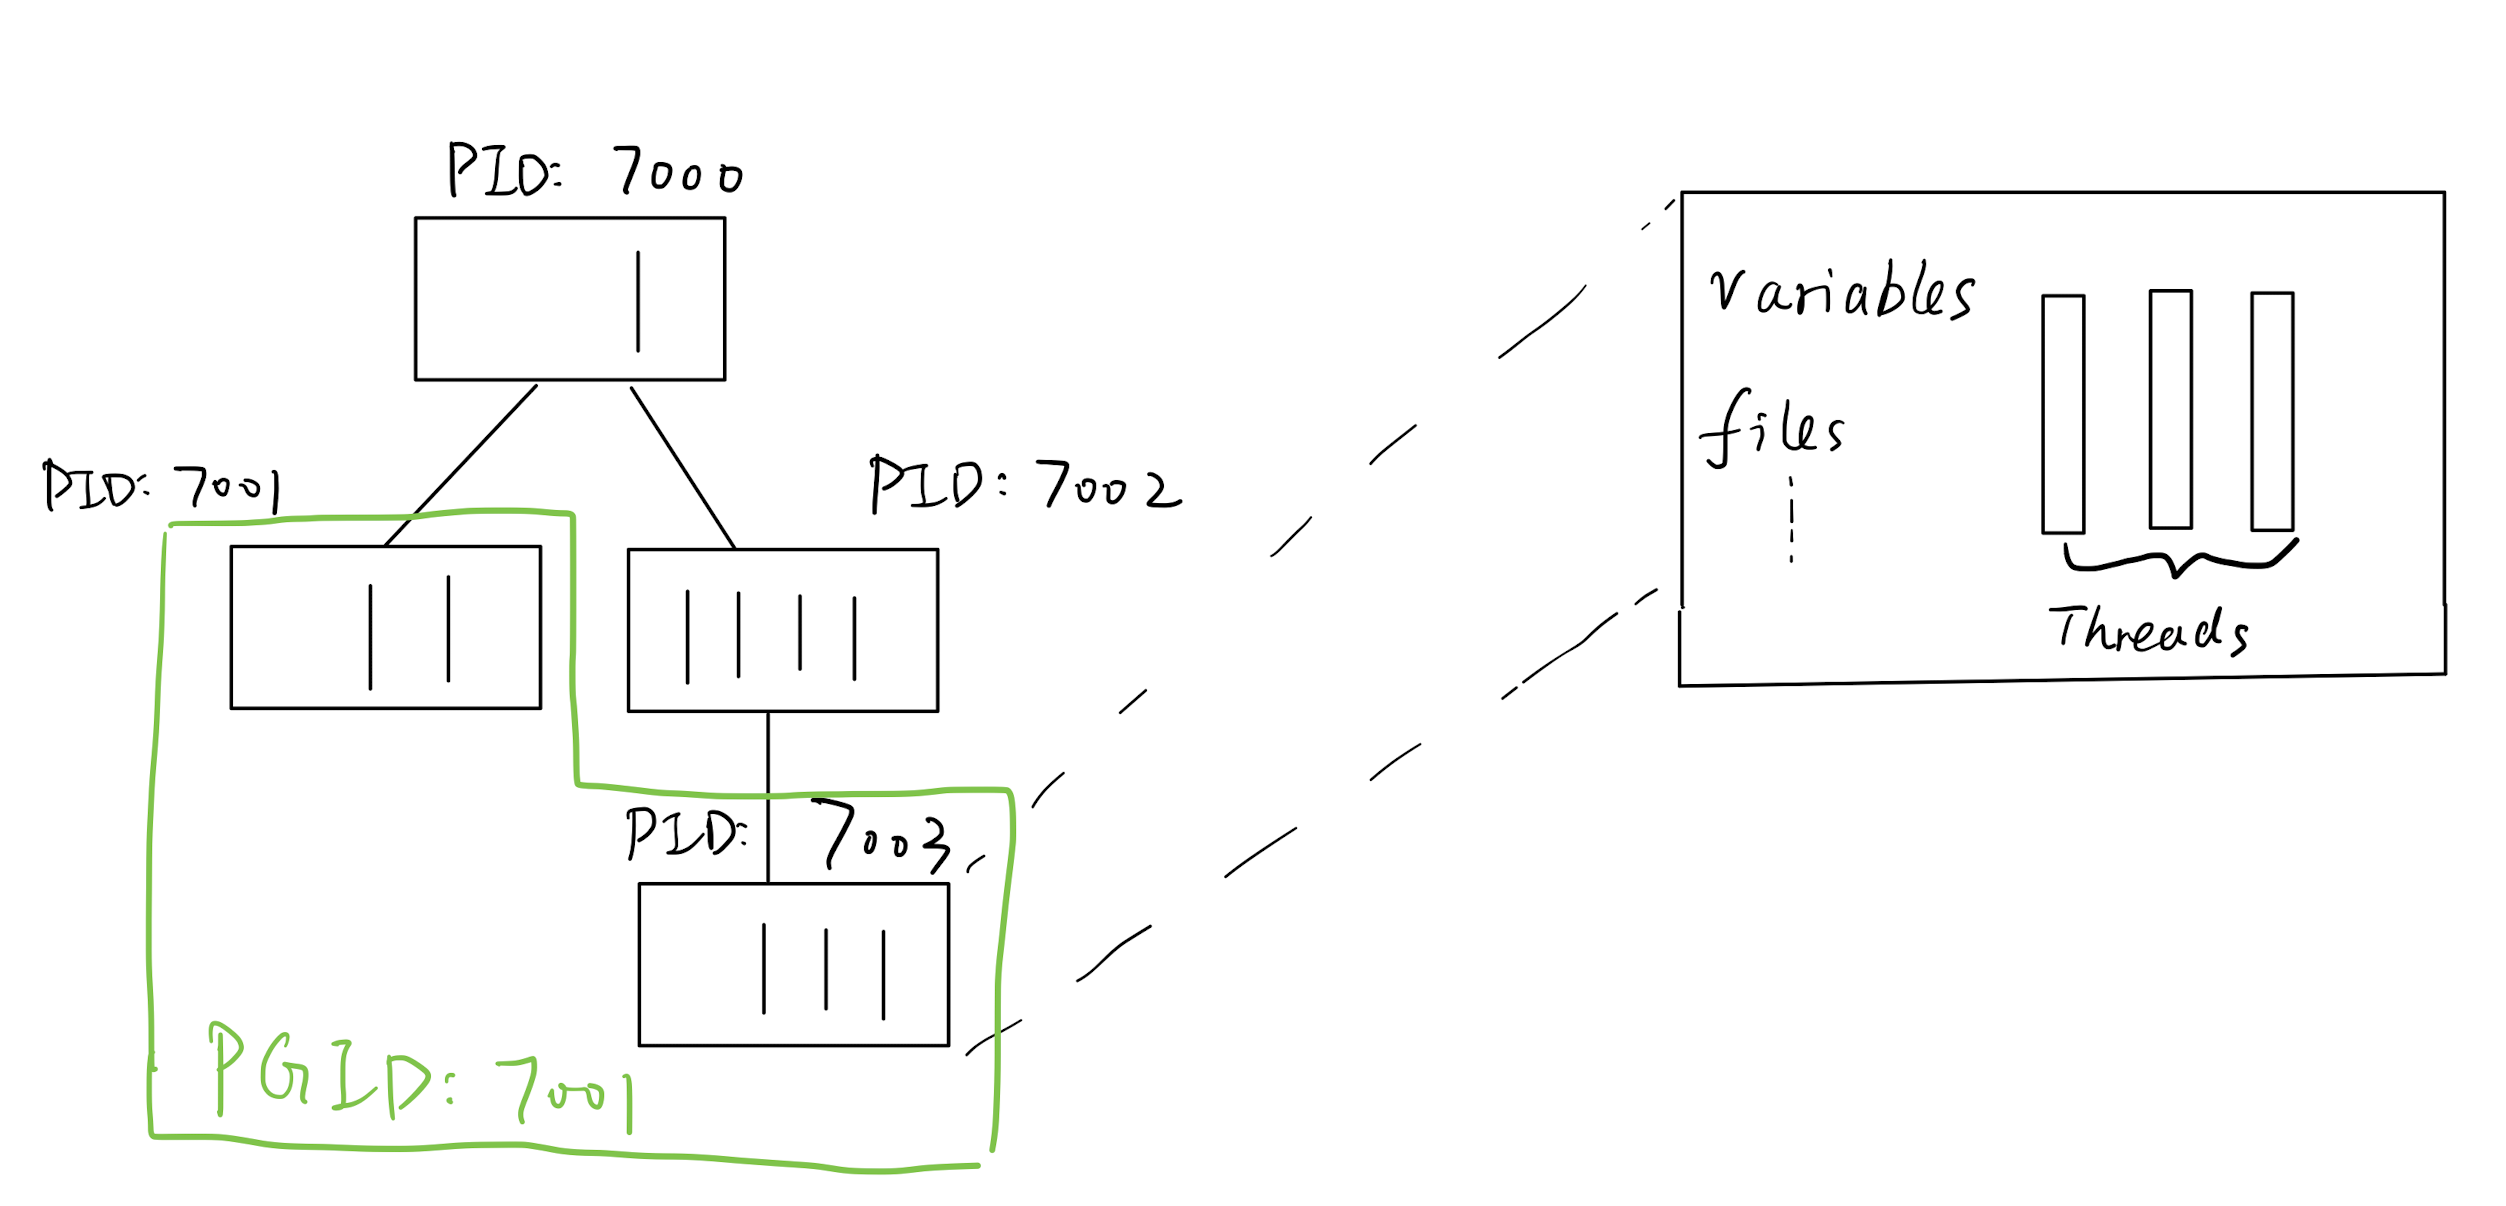 PID: 7000
PID: 7001
PID: 7002
PID: 7003
PGID: 7001
Variables
files
Threads